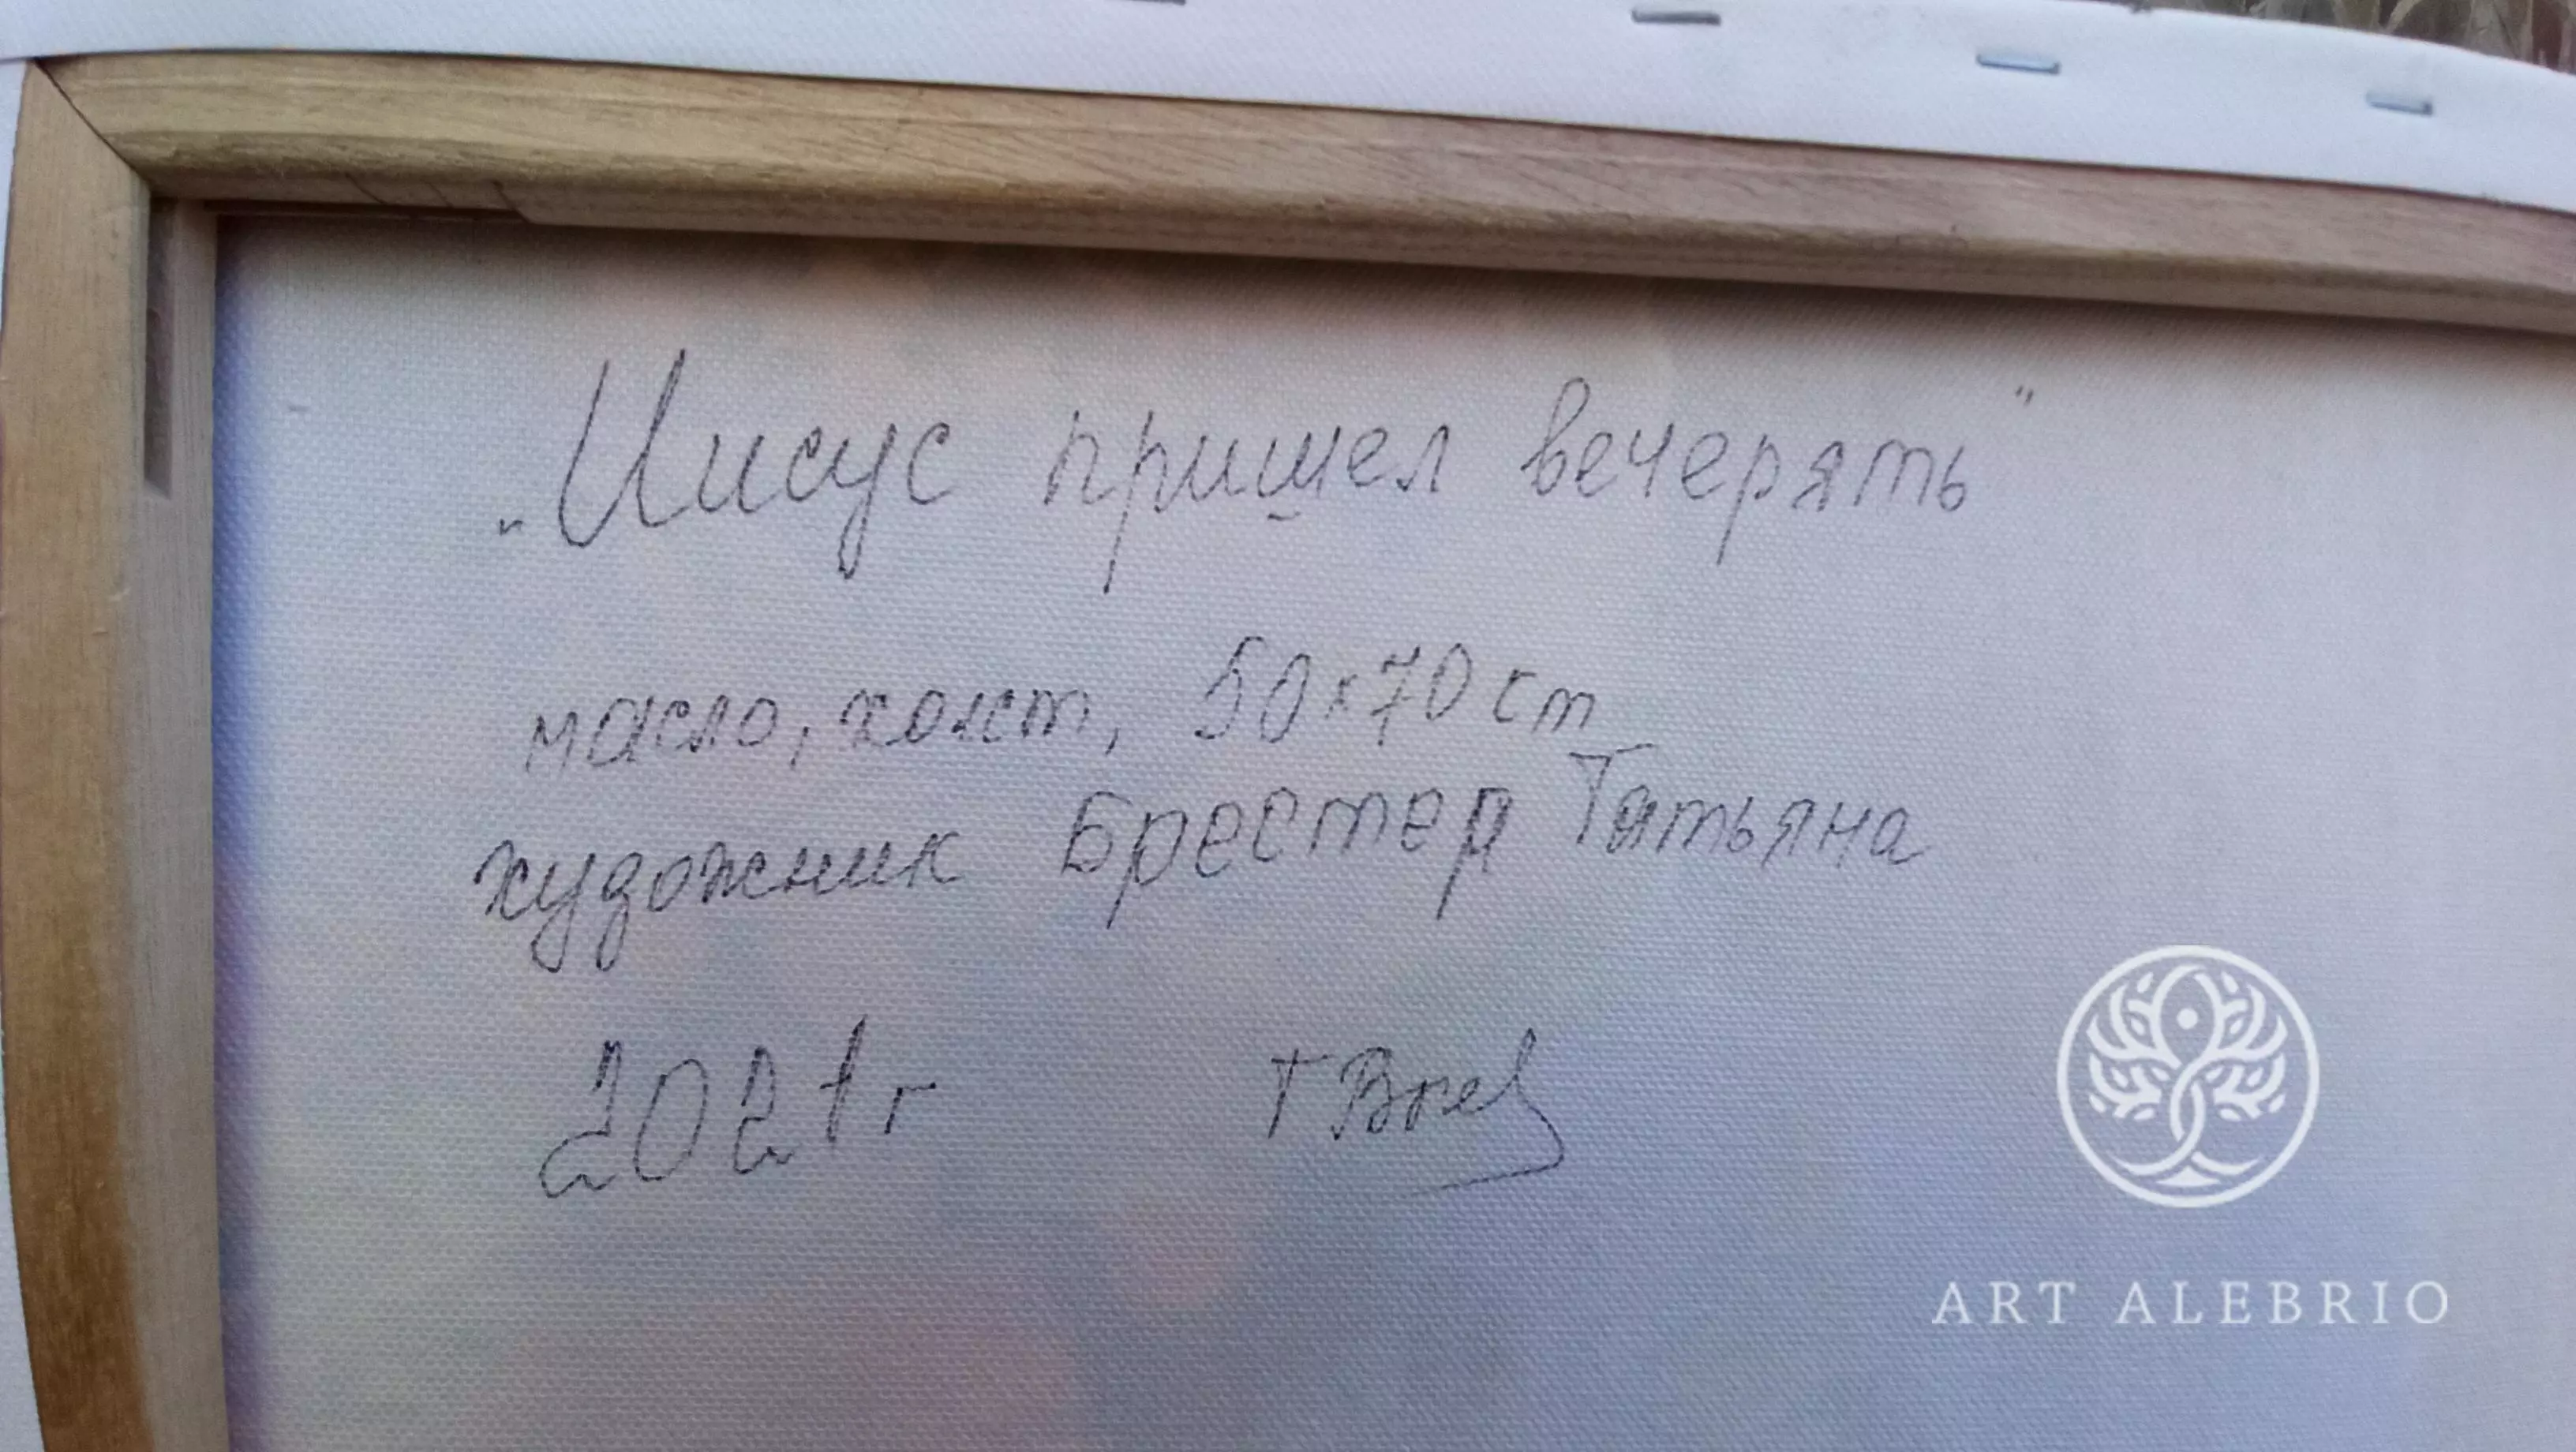 „Иисус пришел вечерять"
масло, холст, 50х70 cm
художник Брестер Татьяна
2021 г
ART ALEBRIO